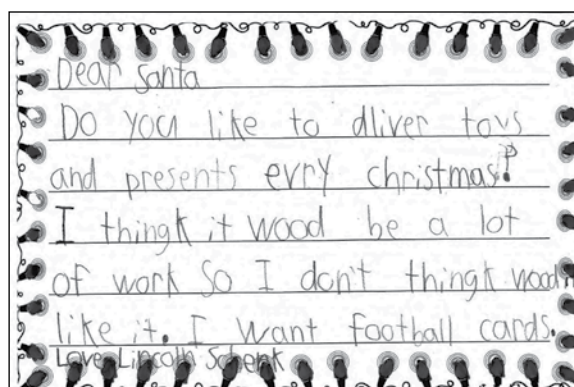 Dear Santa
Do you like to dliver toys
and presents evry christmas?
I thingk it wood be a lot
of work So I don't thingk
like it. I want football cards.
Love Lincoln Schenk